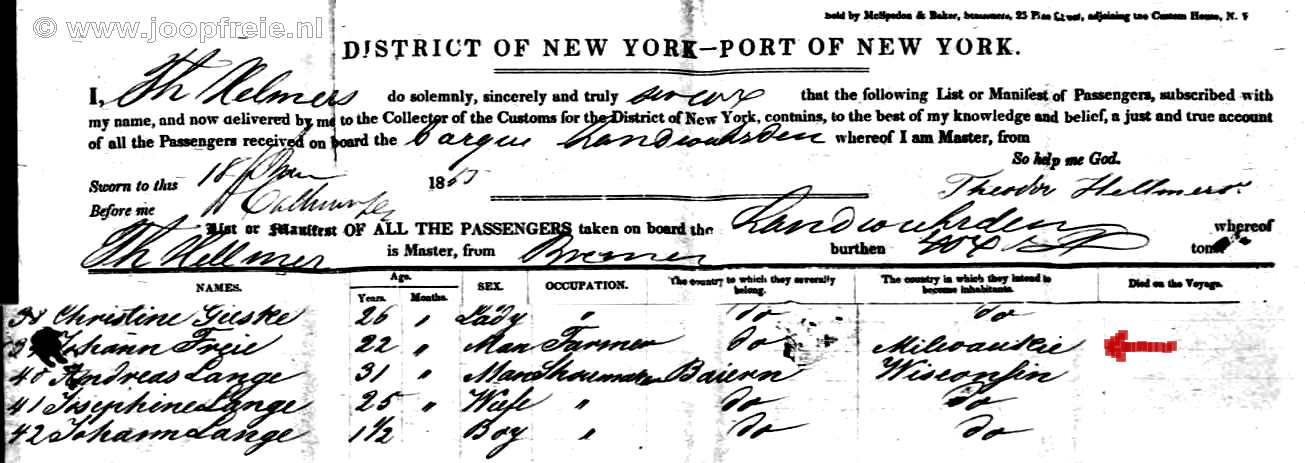 © www.joopfreie.nl
Sold by McSpedon & Baker, Stationers, 25 Pine Street, adjoining the Custom House, N. Y
DISTRICT OF NEW YORK—PORT OF NEW YORK.
I, Th Helmers do solemnly, sincerely and truly swear that the following List or Manifest of Passengers, subscribed with
my name, and now delivered by me to the Collector of the Customs for the District of New York, contains, to the best of my knowledge and belief, a just and true account
of all the Passengers received on board the Barque Landwuhrden whereof I am Master, from
So help me God.
Sworn to this 18 1855 Theodor Hellmers
Before me
List or Manifest OF ALL THE PASSENGERS taken on board the Landwuhrden whereof
Th Hellmer is Master, from Bremen burthen tons
NAMES. Age. Years. Months. SEX. OCCUPATION. The country to which they severally belong. The country in which they intend to become inhabitants. Died on the Voyage.
38 Christine Gieske 26 " Lady " do do
Johann Freie 22 " Man Farmer do Milwaukie
40 Andreas Lange 31 " Man Shoemaker Baiern Wisconsin
41 Josephine Lange 25 " Wiefe " do do
42 Johann Lange 1 1/2 Boy " do do